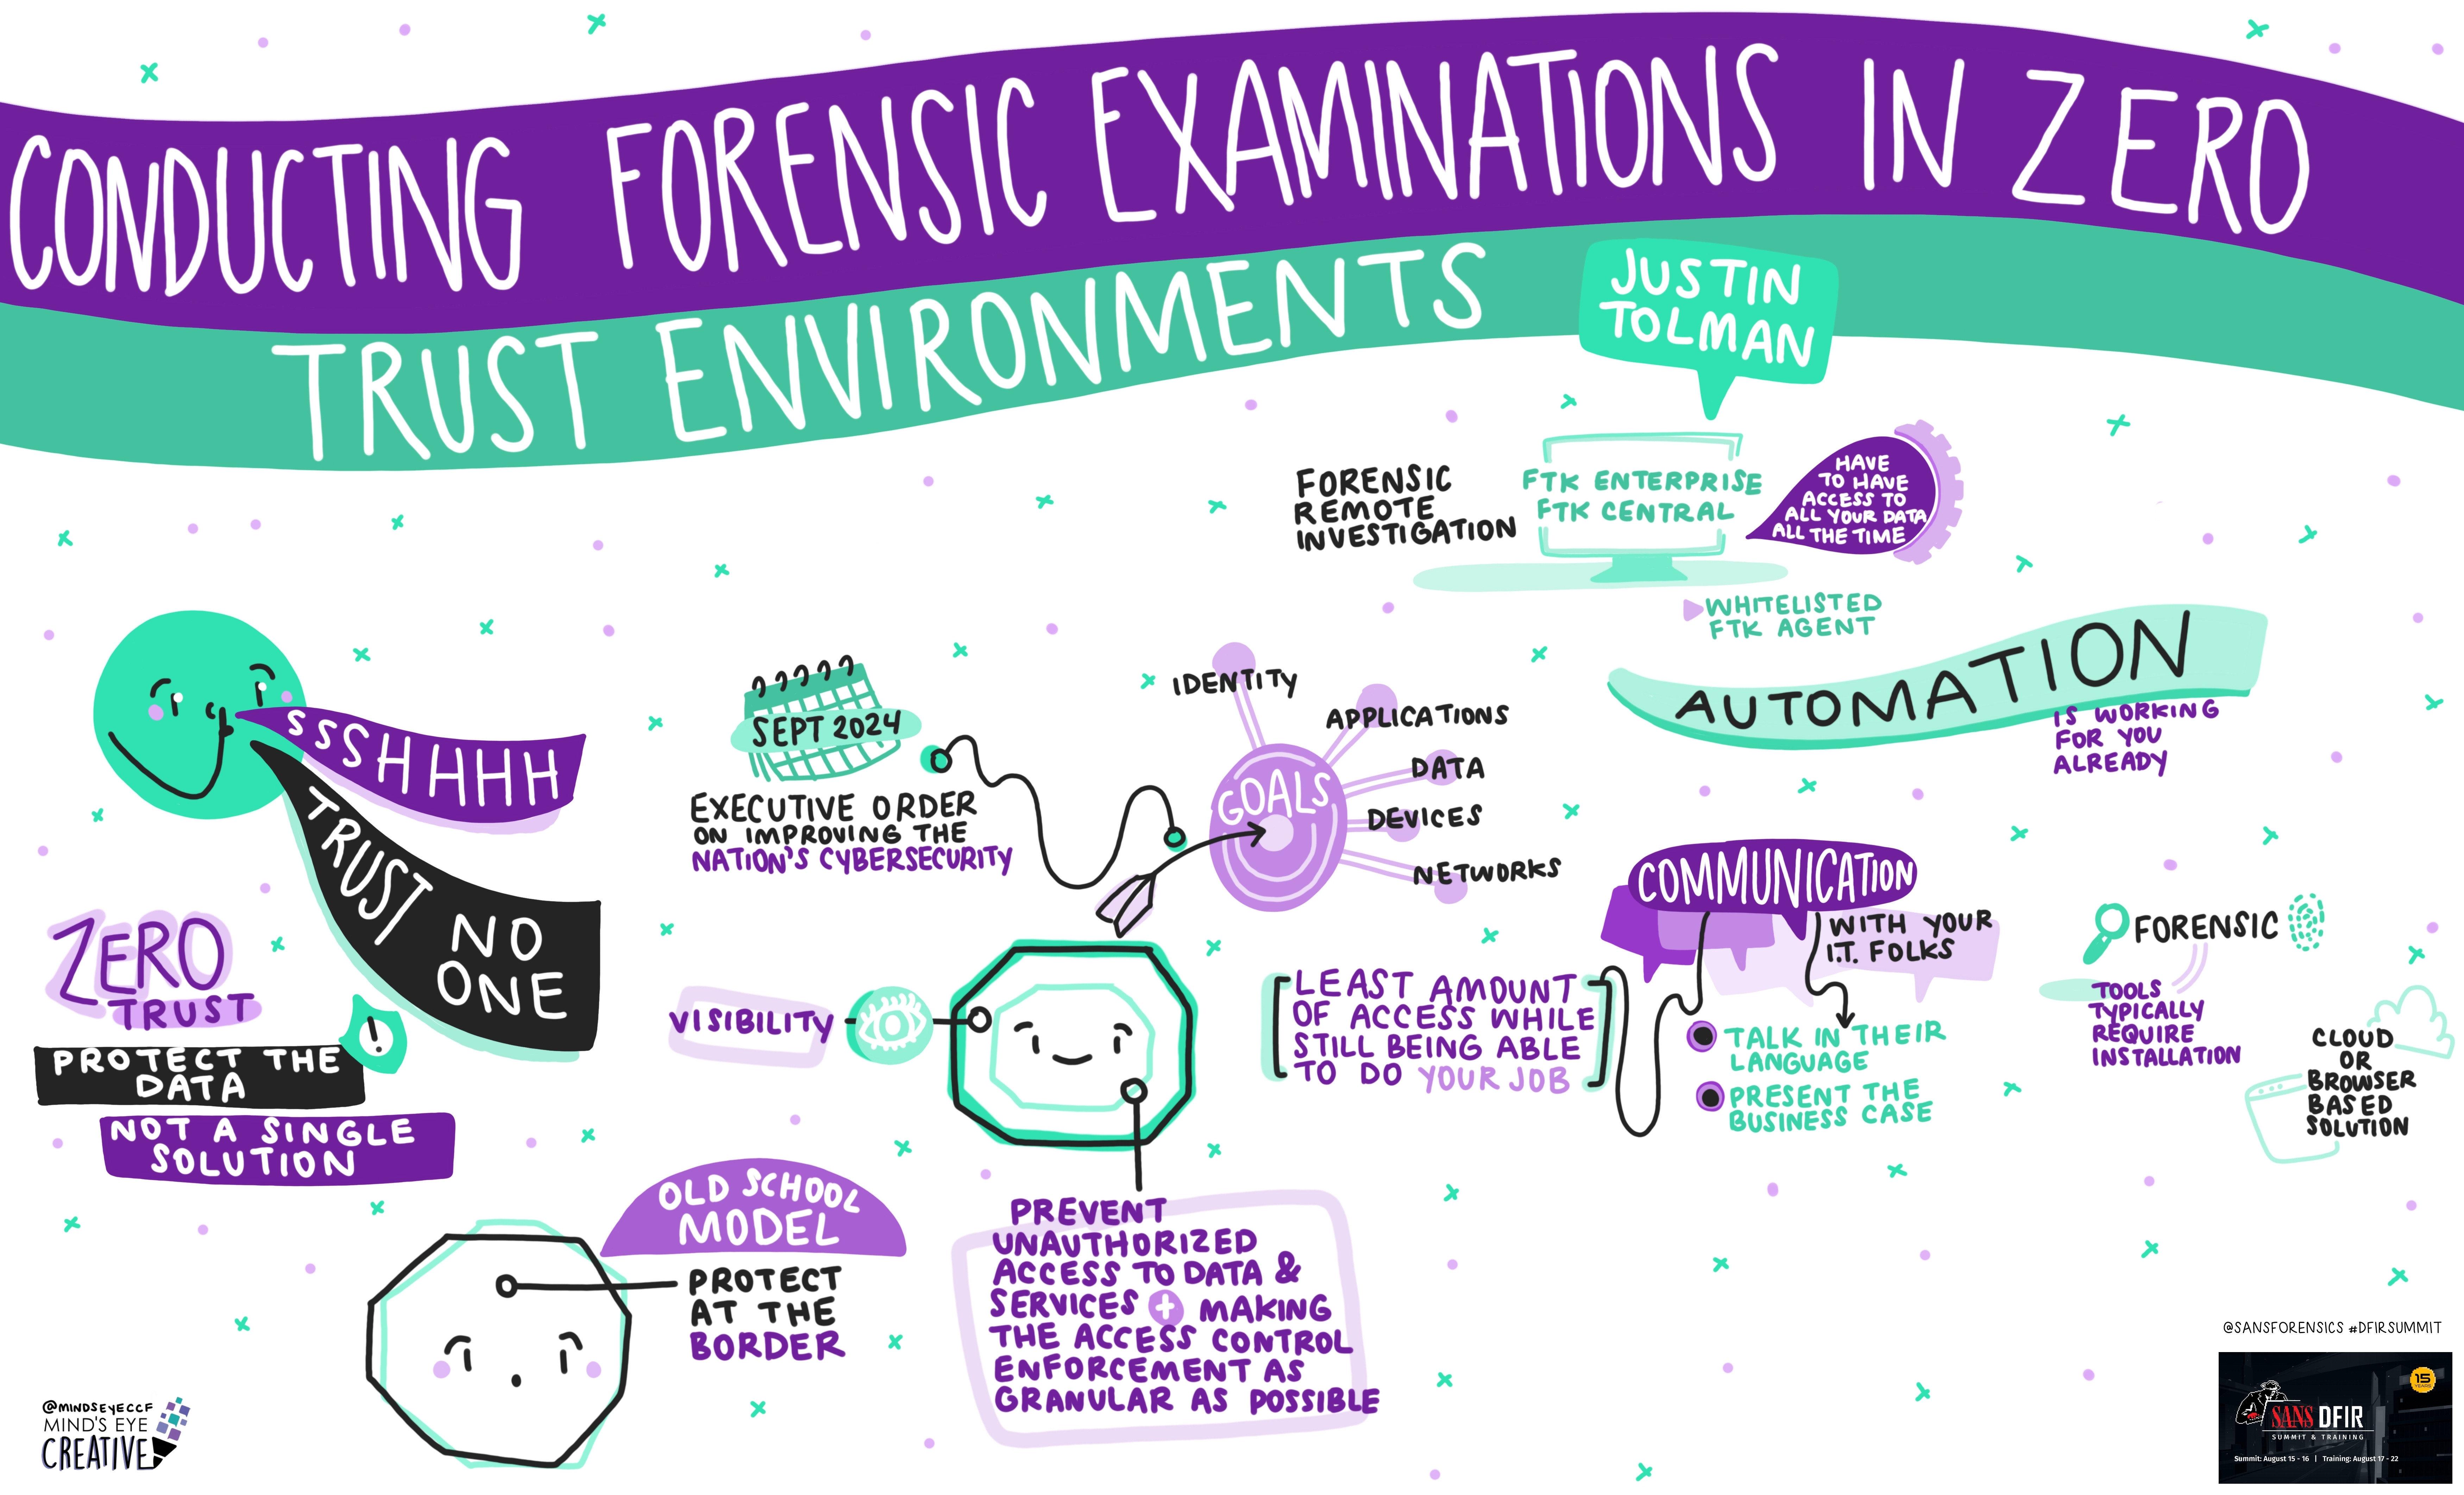 CONDUCTING FORENSIC EXAMINATIONS IN ZERO
TRUST ENVIRONMENTS
JUSTIN
TOLMAN
FORENSIC
REMOTE
INVESTIGATION
FTK ENTERPRISE
FTK CENTRAL
HAVE
TO HAVE
ACCESS TO
ALL YOUR DATA
ALL THE TIME
WHITELISTED
FTK AGENT
AUTOMATION
IS WORKING
FOR YOU
ALREADY
SSSHHHH
TRUST NO
ONE
ZERO
TRUST
!
PROTECT THE
DATA
NOT A SINGLE
SOLUTION
SEPT 2024
EXECUTIVE ORDER
ON IMPROVING THE
NATION'S CYBERSECURITY
GOALS
IDENTITY
APPLICATIONS
DATA
DEVICES
NETWORKS
VISIBILITY
LEAST AMOUNT
OF ACCESS WHILE
STILL BEING ABLE
TO DO YOUR JOB
COMMUNICATION
WITH YOUR
I.T. FOLKS
TALK IN THEIR
LANGUAGE
PRESENT THE
BUSINESS CASE
FORENSIC
TOOLS
TYPICALLY
REQUIRE
INSTALLATION
CLOUD
OR
BROWSER
BASED
SOLUTION
OLD SCHOOL
MODEL
PROTECT
AT THE
BORDER
PREVENT
UNAUTHORIZED
ACCESS TO DATA &
SERVICES + MAKING
THE ACCESS CONTROL
ENFORCEMENT AS
GRANULAR AS POSSIBLE
@MINDSEYECCF
MIND'S EYE
CREATIVE
@SANSFORENSICS #DFIRSUMMIT
15
YEARS
SANS DFIR
SUMMIT & TRAINING
Summit: August 15 - 16 | Training: August 17 - 22